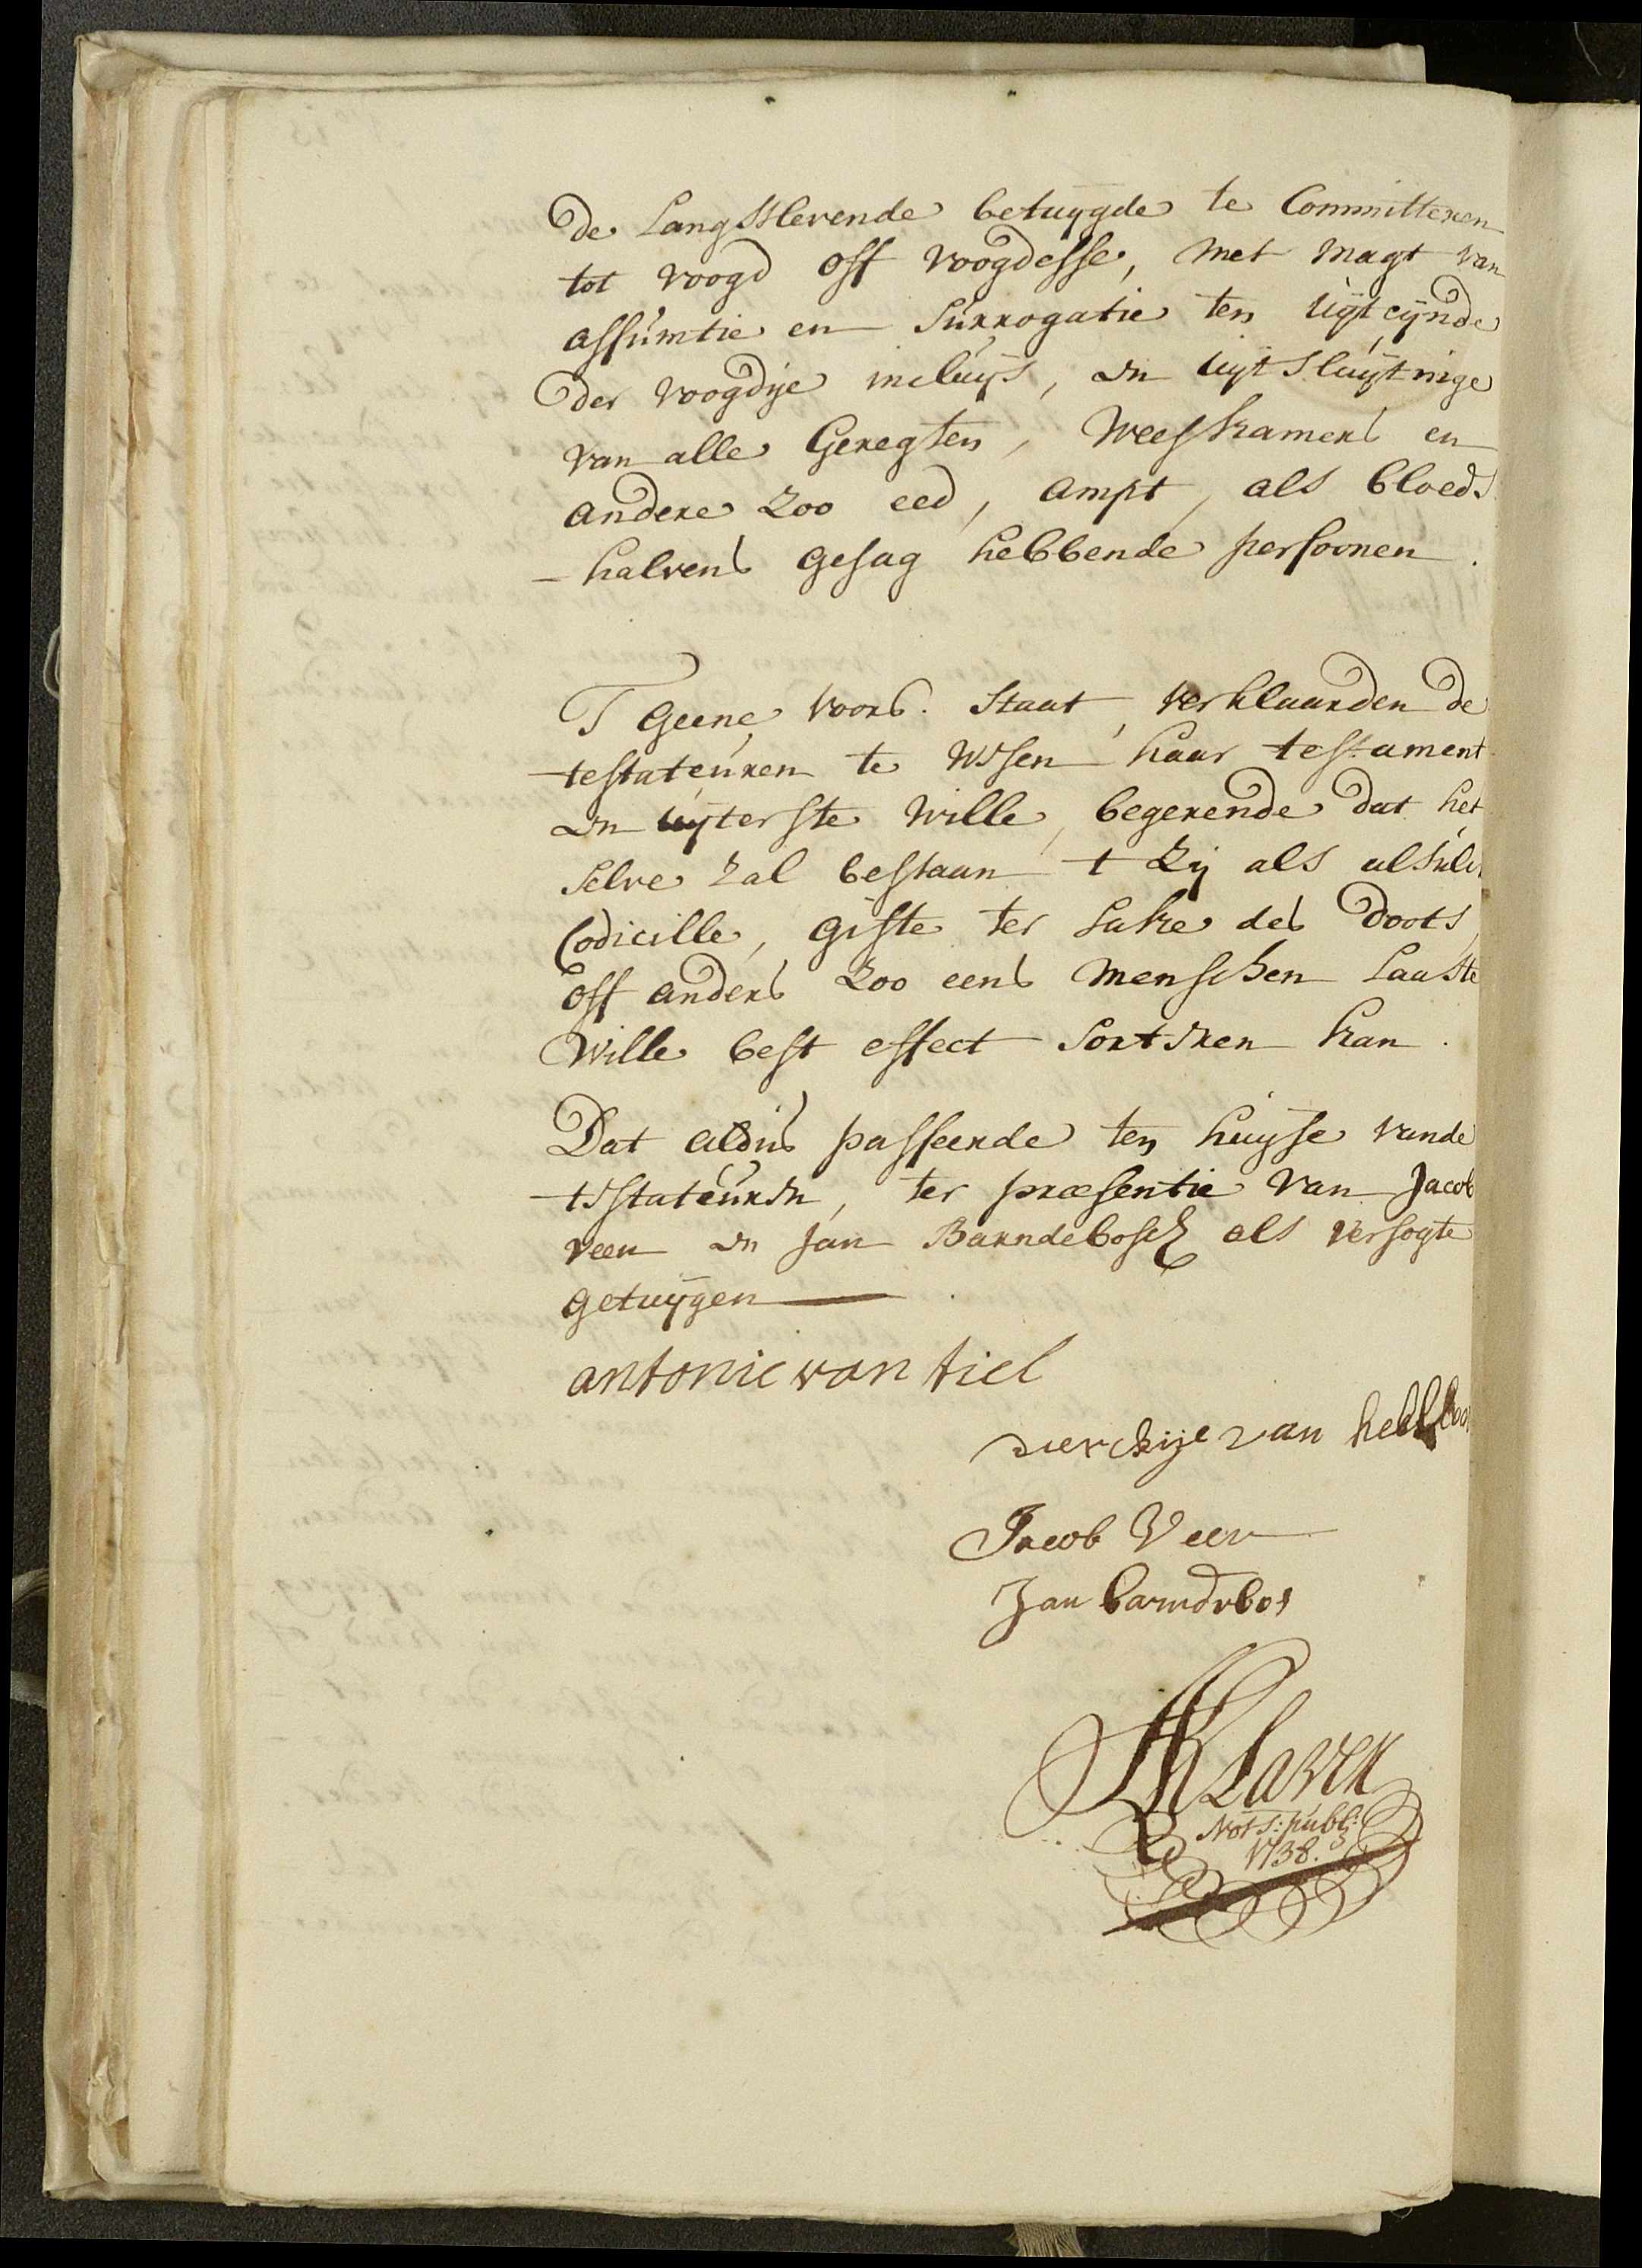 de Langstlevende betuijgde te Committeren
tot voogd off voogdesse, met magt van
assumtie en surrogatie ten uijteijnde
der voogdije incluijs, en uijtsluijtinge
van alle Geregten, Weeskamers en
andere Zoo eed, ampt, als bloeds
-halvens gesag hebbende persoonen.
T Geene voors. Staat, verklaarden de
testateuren te wesen haar testament
en uijterste wille, begerende dat het
selve zal bestaan t Zij als alsulx
Codicille, gifte ter sake des doots,
off anders Zoo eens menschen laaste
Wille best effect sorteren kan.
Dat aldus passeerde ten huijse vande
testateuren, ter præsentie van Jacob
veen en Jan Barndebosch als versogte
getuijgen
antonie van tiel
dierckije van
Jacob Veen
Jan barndebos
Klaver
Not s: publ:
1738.